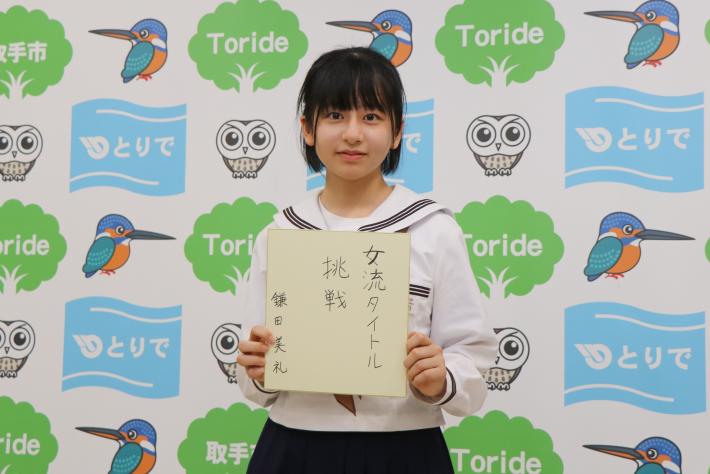 取手市
Toride
Toride
とりで
とりで
Toride
Toride
Toride
女流タイトル
挑戦
鎌田美礼
とりで
とりで
Toride
取手市
Toride